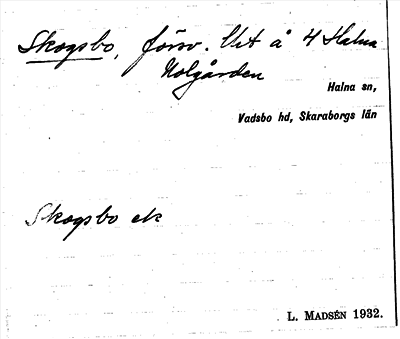 Skogsbo, försv. Utt å 4 Halna
Nolgården
Halna sn,
Vadsbo hd, Skaraborgs län
Skogsbo ek
L. MADSÉN 1932.